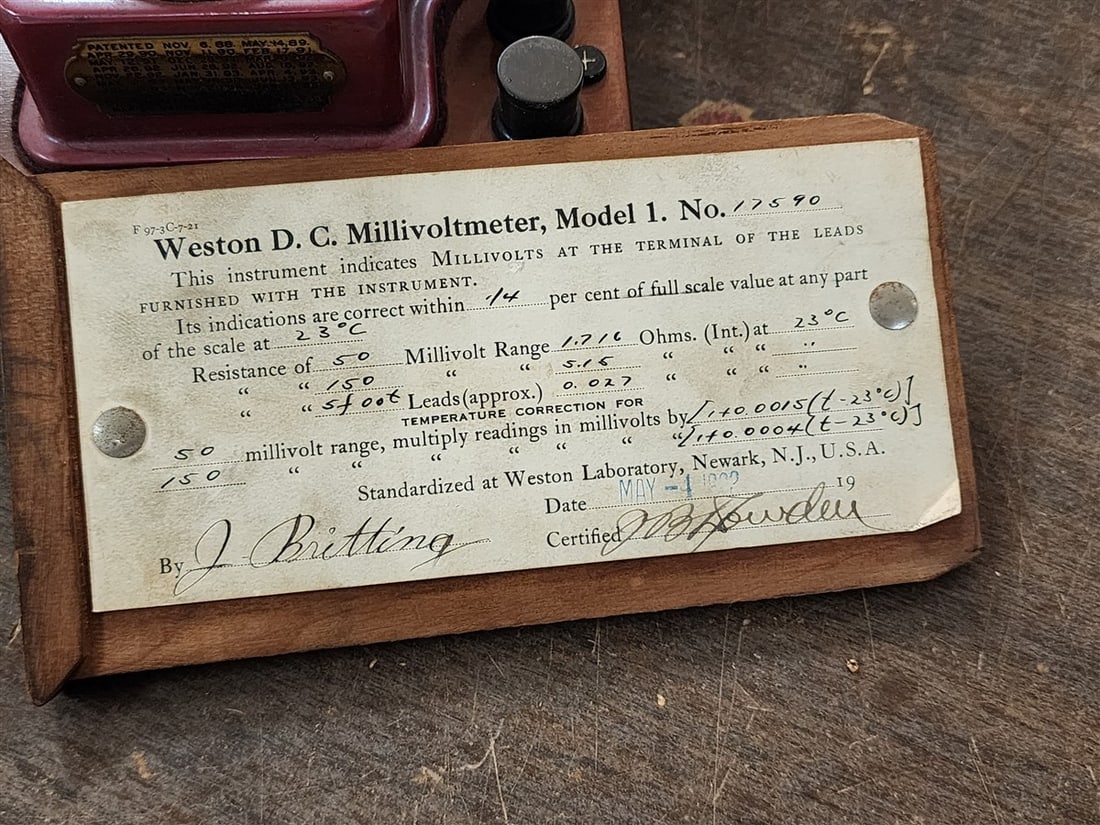 PATENTED NOV. 6. 88. MAY. 14. 89.
F 97-3C-7-21
Weston D. C. Millivoltmeter, Model 1. No. 17590
This instrument indicates MILLIVOLTS AT THE TERMINAL OF THE LEADS
FURNISHED WITH THE INSTRUMENT.
Its indications are correct within 1/4 per cent of full scale value at any part
of the scale at 23°C
Resistance of 50 Millivolt Range 1.716 Ohms. (Int.) at 23°C
“ “ 150 “ “ 5.15 “ “ “ “
“ “ 5 foot Leads (approx.) 0.027 “ “ “ “
TEMPERATURE CORRECTION FOR
50 millivolt range, multiply readings in millivolts by [1+0.0015(t-23°C)]
150 “ “ “ “ “ “ [1+0.0004(t-23°C)]
Standardized at Weston Laboratory, Newark, N.J., U.S.A.
Date MAY -4 19
By J Britting Certified